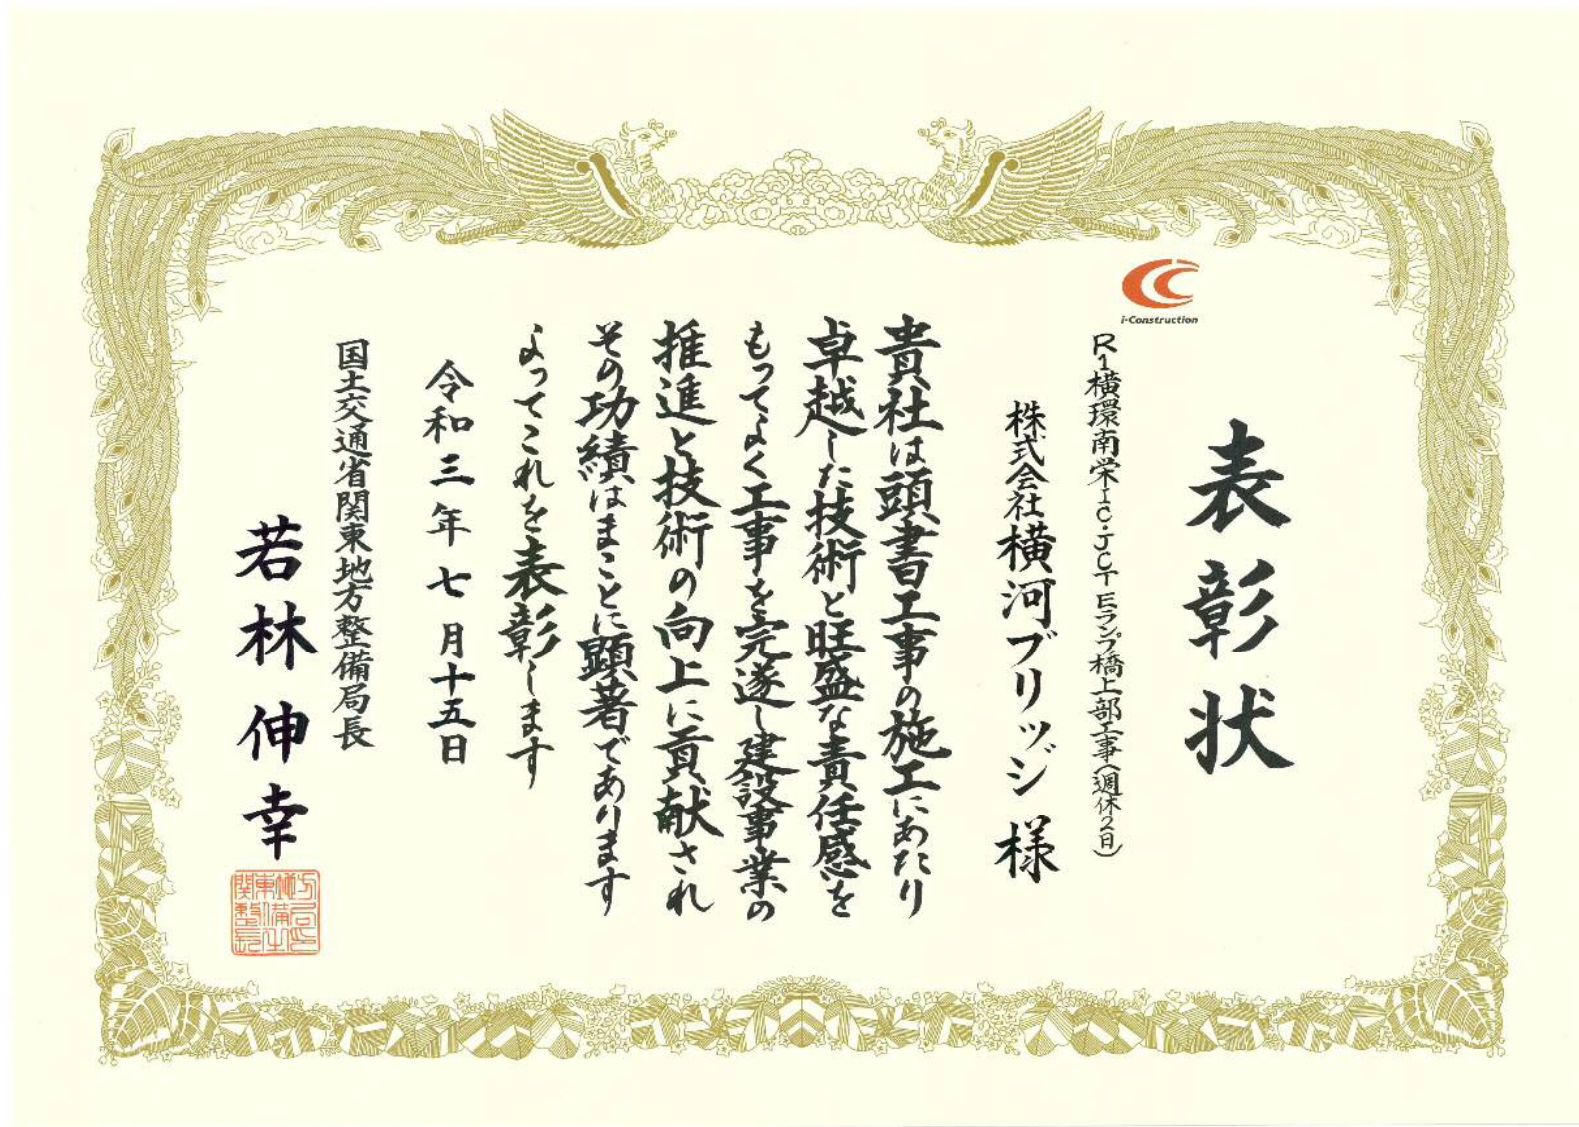 表彰状
i-Construction
R1横環南栄IC・JCTEランプ橋上部工事(週休2日)
株式会社横河ブリッジ 様
貴社は頭書工事の施工にあたり
卓越した技術と旺盛な責任感を
もってよく工事を完遂し建設事業の
推進と技術の向上に貢献され
その功績はまことに顕著であります
よってこれを表彰します
令和三年七月十五日
国土交通省関東地方整備局長
若林伸幸
関東地方
整備局
長之印